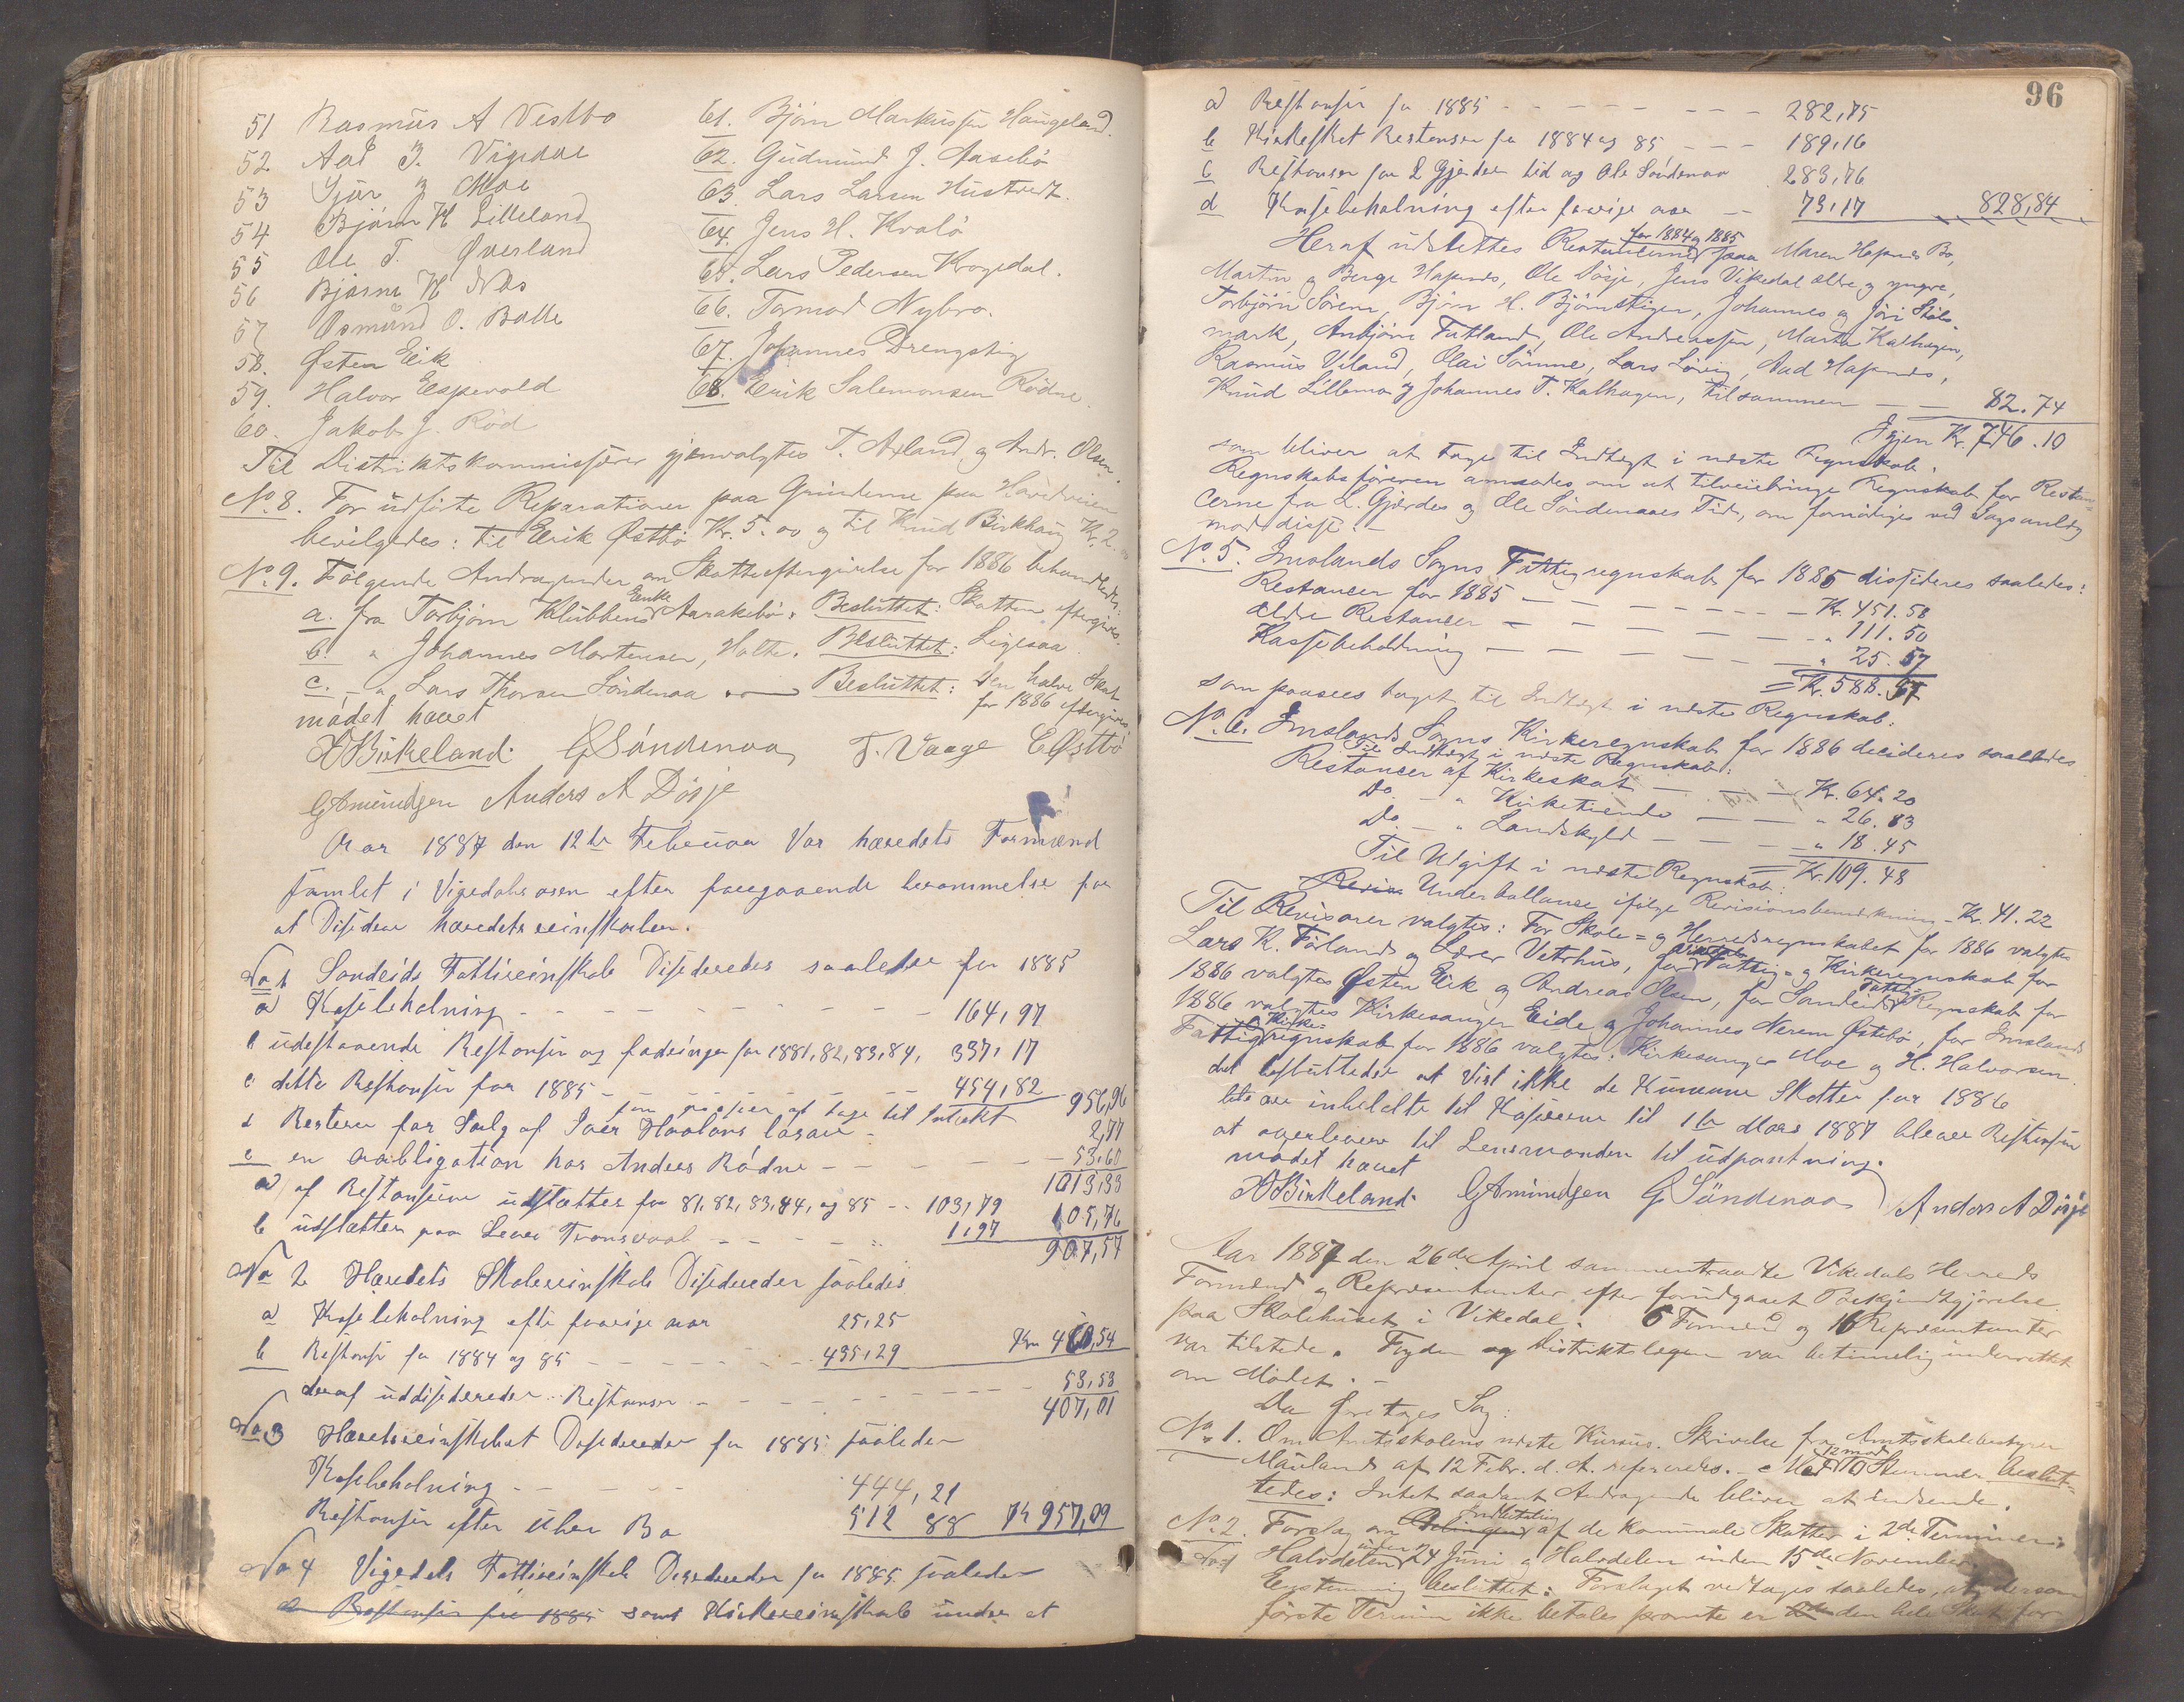 51 Rasmus A Vestbo
52 Aad J. Vigedal
53 Sjur J Moe
54 Bjørn H Lilleland
55 Ole T. Øverland
56 Bjørne H Næs
57 Osmund O. Balle
58. Østen Eik
59. Halvor Eespevold
60. Jakob J. Röd
61. Björn Markussen Haugeland.
62. Gudmund J. Aasebö
63. Lars Larsen Hustvedt.
64. Jens H. Kvalö
65. Lars Pedersen Krogedal.
66. Tormod Nybro.
67. Johannes Drengstig
68. Eerik Salemonsen Rödne.
Til Distriktskommissærer gjenvalgtes T. Axland og Andr. Olsen.
No. 8. For udförte Reparationer paa Grinderne paa Hovedveien
bevilgedes: til Eerik Østbö Kr. 5.00 og til Knud Birkhaug Kr. 2.00
No. 9. Fölgende Andragender om Skatteeftergivelse for 1886 behandledes:
a. fra Torbjörn Klubbens Enke Aarakebö. Besluttet: Skatten eftergives.
b. " Johannes Mortensen, Holte. Besluttet: Ligesaa.
c. " Lars Thorsen Söndenaa Besluttet: Den halve Skat
for 1886 eftergives
mödet hævet
H Birkeland. G Söndenaa T. Vaage E Østbö
G Amundsen Anders A Døsje
Aar 1887 den 12te Februar Var hæredets Formænd
samlet i Vigedahlsosen efter foregaaende berammelse for
at Diside hæredets reinskaber.
No 1 Sandeids Fattireinskab Disideredes saaledes for 1885
a Kasebeholning 164,97
b udestaaende Restanser og fadringer for 1881, 82, 83, 84, 337,17
c detto Restanser for 1885 454,82 956,96
som passer at tage til Intækt
d Resteren for Salg af Iver Haalans løsøre 2,77
e en oobligation hos Anders Rødne 53,60
1013,33
a af Restanserne udsættes for 81, 82, 83, 84, og 85 103,79
b udsætten paa Lever Transvaal 1,97 105,76
907,57
No 2 Hæredets Skolereinskab Disidereder saaledis
a Kasebeholning efte forrige aar 25,25
b Restanser for 1884 og 85 435,29 Kr 460,54
deraf uddisidereder Restanser 53,53
407,01
No 3 Hæredsreinskabet Desidereder for 1885 saaleder
Kasebeholning 444,21
Restanser efter uher Bo 512 88 Kr 957,09
No 4 Vigedals Fattireinskab Desidereder for 1885 saaleder
a Restanser for 1885 samt Kirkereinskab under et
96
a Restanser for 1885 282,75
b Kirkeskat Restenser for 1884 og 85 189,16
c Restanser for L Gjerdes tid og Ole Söndenaa 283,76
d Kasebeholning efter forrige aar 73,17 828,84
Heraf udslettes Restancerne for 1884 og 1885 paa Maren Hapnes Bo,
Martin og Berge Hapnes, Ole Døsje, Jens Vikedal ældre og yngre,
Torbjörn Sörene, Björn H. Björnstigen, Johannes og Jöri Skois-
mark, Anbjörn Futland, Ole Andreassen, Marta Kalhagen,
Rasmus Viland, Olai Sömme, Lars Löviig, Aad Hapnes,
Knud Lillemo og Johannes T. Kalhagen, tilsammen 82.74
Igjen Kr. 746.10
som bliver at tage til Indtægt i næste Regnskab.
Regnskabsföreren anmodes om at tilveiebringe Regnskab for Restan-
cerne fra L. Gjerdes og Ole Söndenaaes Tid, om fornödiges ved Sagsanlæg
mod disse.
No. 5. Imslands Sogns Fattigregnskab for 1885 disideres saaledes:
Restancer for 1885 Kr. 451.50
Ældre Restancer " 111.50
Kassebeholdning " 25.57
= Kr. 588.57
som passeres taget til Indtægt i næste Regnskab.
No. 6. Imslands Sogns Kirkeregnskab for 1886 decideres saaledes
Til Indtægt i næste Regnskab:
Restancer af Kirkeskat Kr. 64.20
Do. " Kirketiende " 26.83
Do. " Landskyld " 18.45
= Kr. 109.48
Til Udgift i næste Regnskab:
Revis Underballance ifölge Revisionsbemærkning Kr. 41.22
Til Revisorer valgtes: For Skole= og Herredsregnskabet for 1886 valgtes
Lars K. Förland og Lærer Vetrhus, for Vikedals Fattig= og Kirkeregnskab for
1886 valgtes Østen Eik og Andreas Olsen, for Sandeids Fattig= Regnskab for
1886 valgtes Kirkesanger Eide og Johannes Nerem Østebö, for Imslands
Fattig & Kirke= regnskab for 1886 valgtes: Kirkesanger Moe og H. Halvorsen.
det besluttedes at Vist ikke de Kumune Skatter for 1886
blev inbetalte til Kasererne til 1te Mars 1887 blever Restansen
at overlevere til Lensmanden til udpantning.
mødet hævet
H Birkeland. G Amundsen G Söndenaa Anders A Døsje
Aar 1887 den 26de April sammentraadte Vikedals Herreds
Formænd og Repræsentanter efter forudgaaet Bekjendtgjörelse
paa Skolehuset i Vikedal. 6 Formænd og 16 Repræsentanter
var tilstede. Fogden og Distriktslægen var betimelig underrettet
om Mödet.
Da foretoges Sag:
No. 1. Om Amtsskolens næste Kursus. Skrivelse fra Amtsskolebestyrer
Mauland af 12 Febr. d. A. refereredes. Med 12 mod 10 Stemmer beslut-
tedes: Intet saadant Andragende bliver at indsende.
No. 2. Forslag om Indbetaling af de kommunale Skatter i 2de Terminer:
Halvdelen inden 24 Juni og Halvdelen inden 15de November.
Eenstemmig besluttet: Forslaget vedtages saaledes, at dersom
förste Termin ikke betales promte er den hele Skat for-